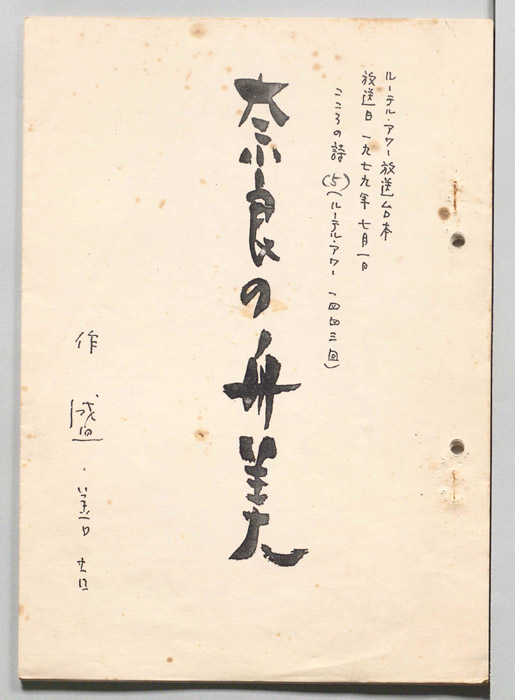 ルーテル・アワー放送台本
放送日 一九七九年 七月一日
こころの詩 (5) (ルーテル・アワー 一四四三回)
奈良の舟美
作 盛・善吉